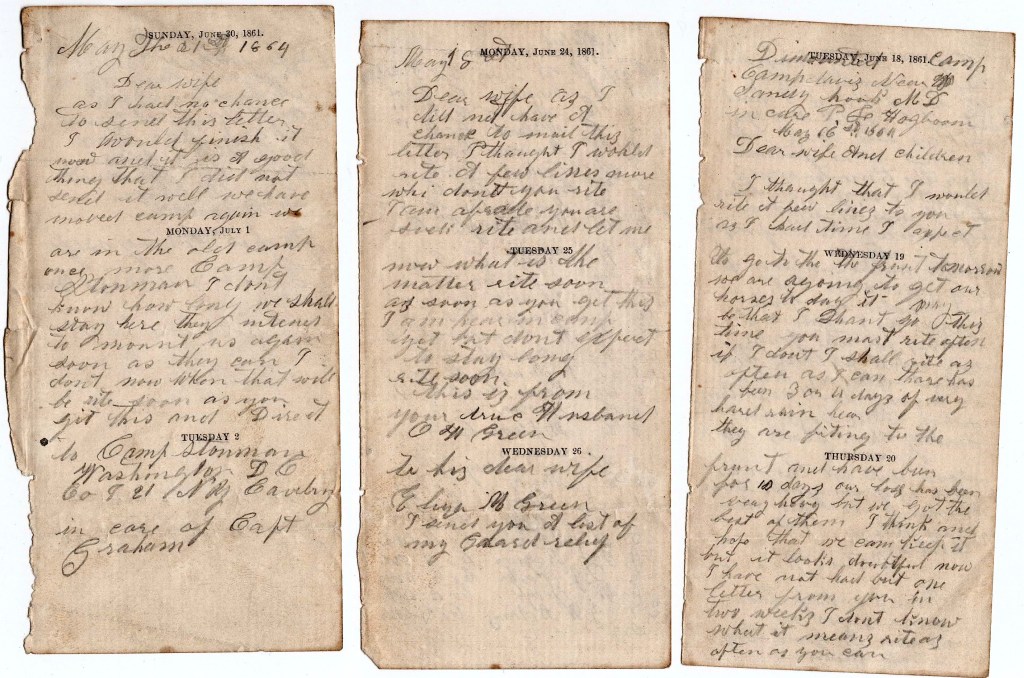 SUNDAY, JUNE 30, 1861.
May the 21st 1864
Dear wife
as I had no chance
to send this letter
I would finish it
now and it is A good
thing that I did not
send it well we have
moved camp again we
MONDAY, JULY 1
are in the old camp
once more Camp
Stonman I dont
know how long we shall
stay here they intend
to mount us again
soon as they can I
dont now when that will
be rite soon as you
git this and Direct
TUESDAY 2
to Camp Stonman
Washington D C
Co I 21 N Y Cavelry
in care of Capt
Graham
MONDAY, JUNE 24, 1861.
May 18
Dear wife as I
did not have A
chance to mail this
letter I thought I would
rite A few lines more
whi dont you rite
I am afrade you are
sick rite and let me
TUESDAY 25
now what is the
matter rite soon
as soon as you get this
I am hear in camp
yet but dont expect
to stay long
rite soon
this is from
your true Husband
E H Green
WEDNESDAY 26
to his dear wife
Eliza M Green
I send you A list of
my Guard relief
TUESDAY, JUNE 18, 1861.
Dismounted Camp
Camp davis Near
Sandy hook M D
in care Hogboom
May 16 1864
Dear wife And children
I thought that I would
rite A few lines to you
as I had time I expect
WEDNESDAY 19
to go to the front tomorrow
we are agoing to get our
horses to day it may
be that I Shant go this
time you must rite often
if I dont I shall rite as
often as I can Thare has
been 3 or 4 days of very
hard rain hear
they are fiting to the
THURSDAY 20
frunt and have bun
for 10 days our loss has been
veary hevy but we got the
best of them I think and
hop that we can keep it
but it looks doubtful now
I have not had but one
letter from you in
two weeks I dont know
what it means rite as
often as you can